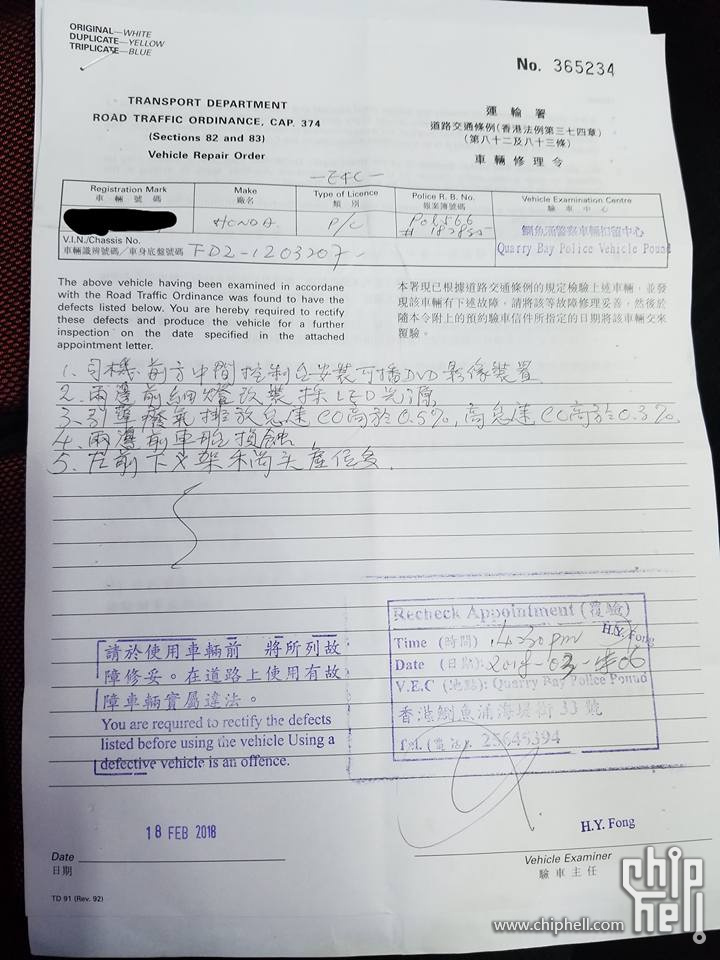 ORIGINAL—WHITE
DUPLICATE—YELLOW
TRIPLICATE—BLUE
No. 365234
TRANSPORT DEPARTMENT
ROAD TRAFFIC ORDINANCE, CAP. 374
(Sections 82 and 83)
Vehicle Repair Order
運輸署
道路交通條例(香港法例第三七四章)
(第八十二及八十三條)
車輛修理令
Registration Mark
車輛號碼
Make
廠名
HONDA
Type of Licence
類別
P/C
Police R. B. No.
報案簿號碼
Vehicle Examination Centre
驗車中心
鰂魚涌警察車輛扣留中心
Quarry Bay Police Vehicle Pound
V.I.N./Chassis No.
車輛識辨號碼/車身底盤號碼
FD2-1203207
The above vehicle having been examined in accordance
with the Road Traffic Ordinance was found to have the
defects listed below. You are hereby required to rectify
these defects and produce the vehicle for a further
inspection on the date specified in the attached
appointment letter.
本署現已根據道路交通條例的規定檢驗上述車輛,並發
現該車輛有下述故障。請將該等故障修理妥善,然後於
隨本令附上的預約驗車信件所指定的日期將該車輛交來
覆驗。
1. 司機前方中間控制台安裝可播DVD影像裝置
2. 兩邊前細燈改裝採LED光源
3. 引擎廢氣排放怠速CO高於0.5%,高怠速CO高於0.3%
4. 兩邊前車胎損蝕
5. 左前下叉架
請於使用車輛前 將所列故
障修妥。在道路上使用有故
障車輛實屬違法。
You are required to rectify the defects
listed before using the vehicle Using a
defective vehicle is an offence.
Recheck Appointment (覆驗)
Time (時間) 14:30pm
H.Y. Fong
Date (日期):
V.E.C (地點): Quarry Bay Police Pound
香港鰂魚涌海堤街 33 號
Tel. (電話): 25645394
18 FEB 2018
Date
日期
H.Y. Fong
Vehicle Examiner
驗車主任
TD 91 (Rev. 92)
chip hell
www.chiphell.com